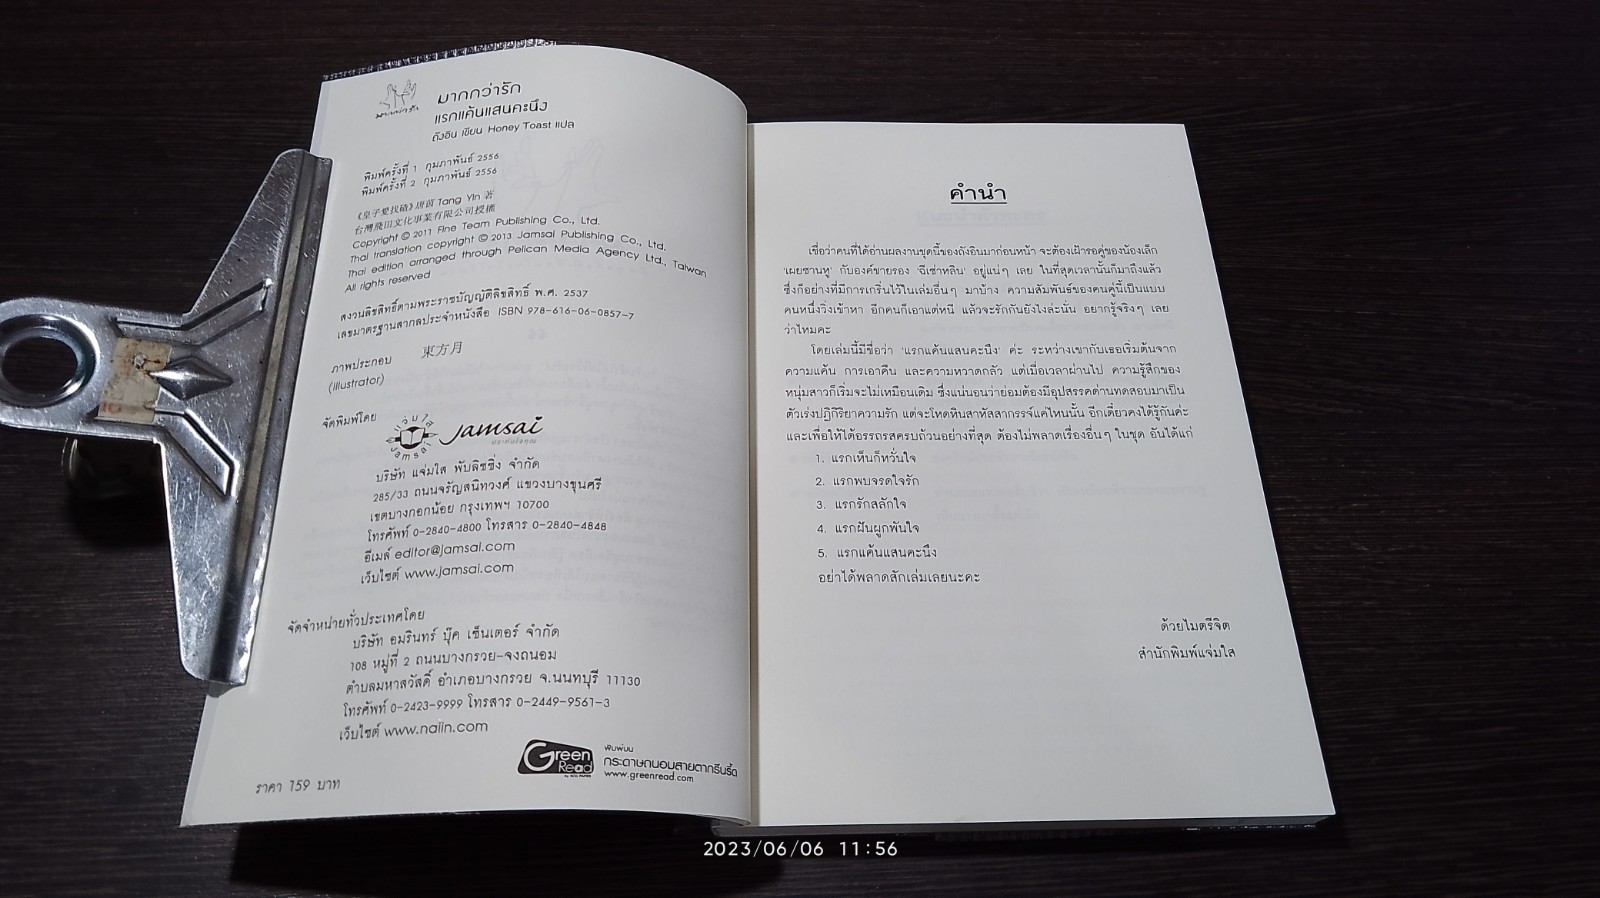 มากกว่ารัก
มากกว่ารัก
แรกแค้นแสนคะนึง
ถังอิน เขียน Honey Toast แปล
พิมพ์ครั้งที่ 1 กุมภาพันธ์ 2556
พิมพ์ครั้งที่ 2 กุมภาพันธ์ 2556
《皇子愛找碴》唐茵 Tang Yin 著
台灣飛田文化事業有限公司授權
Copyright © 2011 Fine Team Publishing Co., Ltd.
Thai translation copyright © 2013 Jamsai Publishing Co., Ltd.
Thai edition arranged through Pelican Media Agency Ltd., Taiwan
All rights reserved
สงวนลิขสิทธิ์ตามพระราชบัญญัติลิขสิทธิ์ พ.ศ. 2537
เลขมาตรฐานสากลประจำหนังสือ ISBN 978-616-06-0857-7
ภาพประกอบ 東方月
(Illustrator)
จัดพิมพ์โดย
แจ่มใส Jamsai
Jamsai
บริษัท แจ่มใส พับลิชชิ่ง จำกัด
285/33 ถนนจรัญสนิทวงศ์ แขวงบางขุนศรี
เขตบางกอกน้อย กรุงเทพฯ 10700
โทรศัพท์ 0-2840-4800 โทรสาร 0-2840-4848
อีเมล์ editor@jamsai.com
เว็บไซต์ www.jamsai.com
จัดจำหน่ายทั่วประเทศโดย
บริษัท อมรินทร์ บุ๊ค เซ็นเตอร์ จำกัด
108 หมู่ที่ 2 ถนนบางกรวย-จงถนอม
ตำบลมหาสวัสดิ์ อำเภอบางกรวย จ.นนทบุรี 11130
โทรศัพท์ 0-2423-9999 โทรสาร 0-2449-9561-3
เว็บไซต์ www.naiin.com
Green Read
พิมพ์บน
กระดาษถนอมสายตากรีนรี้ด
www.greenread.com
ราคา 159 บาท
คำนำ
เชื่อว่าคนที่ได้อ่านผลงานชุดนี้ของถังอินมาก่อนหน้า จะต้องเฝ้ารอคู่ของน้องเล็ก
'เผยซานหู' กับองค์ชายรอง 'ฉีเซ่าหลิน' อยู่แน่ๆ เลย ในที่สุดเวลานั้นก็มาถึงแล้ว
ซึ่งก็อย่างที่มีการเกริ่นไว้ในเล่มอื่นๆ มาบ้าง ความสัมพันธ์ของคนคู่นี้เป็นแบบ
คนหนึ่งวิ่งเข้าหา อีกคนก็เอาแต่หนี แล้วจะรักกันยังไงล่ะนั่น อยากรู้จริงๆ เลย
ว่าไหมคะ
โดยเล่มนี้มีชื่อว่า 'แรกแค้นแสนคะนึง' ค่ะ ระหว่างเขากับเธอเริ่มต้นจาก
ความแค้น การเอาคืน และความหวาดกลัว แต่เมื่อเวลาผ่านไป ความรู้สึกของ
หนุ่มสาวก็เริ่มจะไม่เหมือนเดิม ซึ่งแน่นอนว่าย่อมต้องมีอุปสรรคด่านทดสอบมาเป็น
ตัวเร่งปฏิกิริยาความรัก แต่จะโหดหินสาหัสสากรรจ์แค่ไหนนั้น อีกเดี๋ยวคงได้รู้กันค่ะ
และเพื่อให้ได้อรรถรสครบถ้วนอย่างที่สุด ต้องไม่พลาดเรื่องอื่นๆ ในชุด อันได้แก่
1. แรกเห็นก็หวั่นใจ
2. แรกพบจรดใจรัก
3. แรกรักสลักใจ
4. แรกฝันผูกพันใจ
5. แรกแค้นแสนคะนึง
อย่าได้พลาดสักเล่มเลยนะคะ
ด้วยไมตรีจิต
สำนักพิมพ์แจ่มใส
2023/06/06 11:56